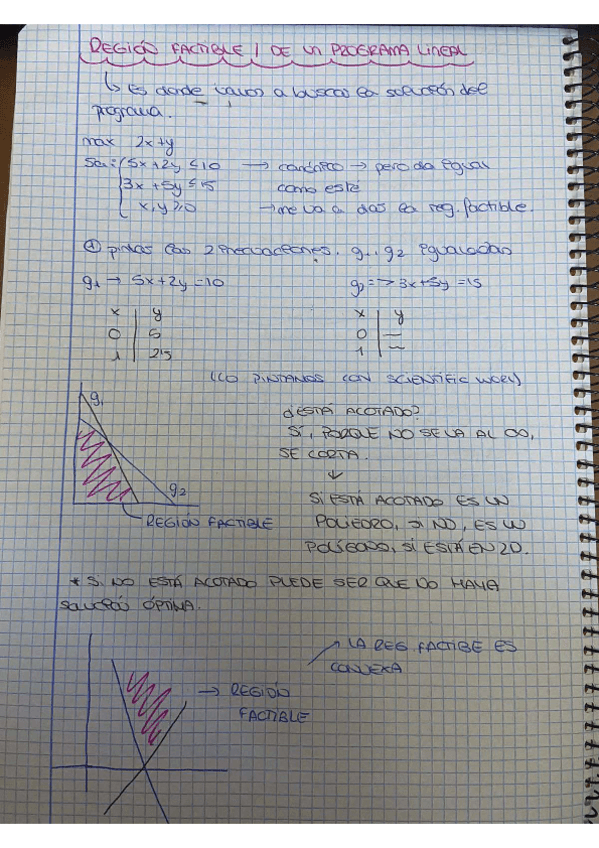 REGIÓN FACTIBLE / DE UN PROGRAMA LINEAL
↳ Es donde vamos a buscar la solución del
programa.
max 2x+y
sa: 5x+2y ≤ 10 → canónico → pero da igual
3x+5y ≤ 15 como esté
x,y ≥ 0 → me va a dar la reg. factible.
① pintar las 2 inecuaciones. g1, g2 igualadas
g1 → 5x+2y=10 g2 => 3x+5y=15
x y x y
0 5 0 —
1 2'5 1 —
(LO PINTAMOS CON SCIENTIFIC WORK)
g1
¿ESTÁ ACOTADO?
SÍ, PORQUE NO SE VA AL ∞,
SE CORTA.
↓
g2
SI ESTÁ ACOTADO ES UN
REGIÓN FACTIBLE
POLIEDRO, SI NO, ES UN
POLÍGONO, SI ESTÁ EN 2D.
* SI NO ESTÁ ACOTADO PUEDE SER QUE NO HAYA
SOLUCIÓN ÓPTIMA.
LA REG. FACTIBLE ES
CONVEXA
→ REGIÓN
FACTIBLE